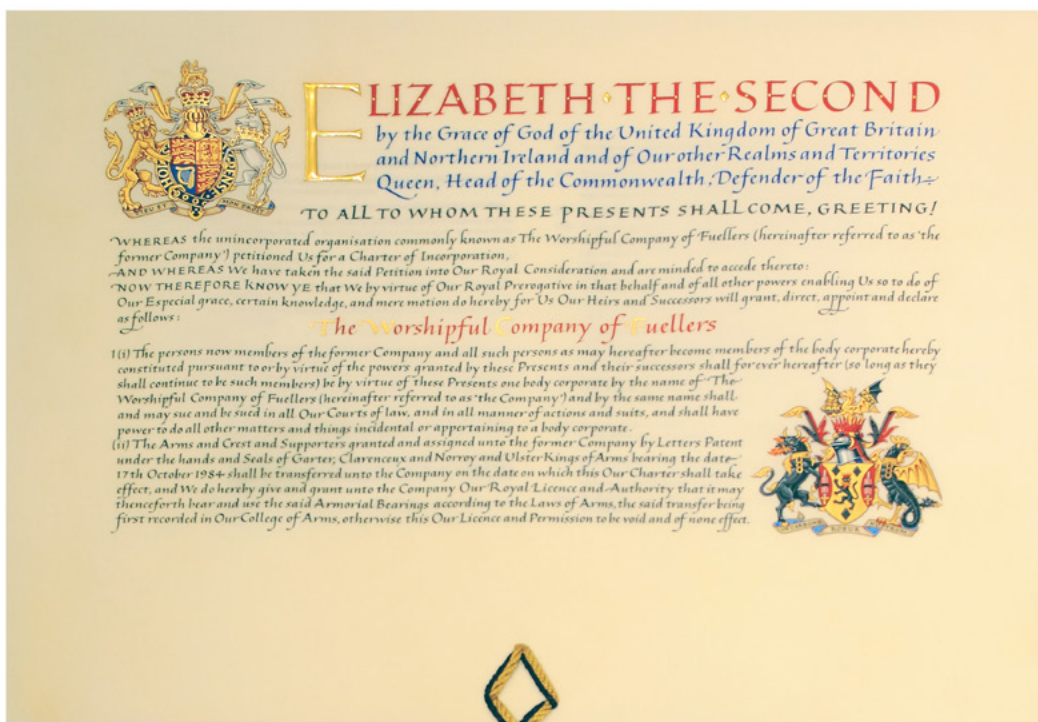 ELIZABETH·THE·SECOND
by the Grace of God of the United Kingdom of Great Britain
and Northern Ireland and of Our other Realms and Territories
Queen, Head of the Commonwealth, Defender of the Faith
TO ALL TO WHOM THESE PRESENTS SHALL COME, GREETING!
WHEREAS the unincorporated organisation commonly known as The Worshipful Company of Fuellers (hereinafter referred to as 'the
former Company') petitioned Us for a Charter of Incorporation,
AND WHEREAS We have taken the said Petition into Our Royal Consideration and are minded to accede thereto:
NOW THEREFORE KNOW YE that We by virtue of Our Royal Prerogative in that behalf and of all other powers enabling Us so to do of
Our Especial grace, certain knowledge, and mere motion do hereby for Us Our Heirs and Successors will grant, direct, appoint and declare
as follows:
The Worshipful Company of Fuellers
1(i) The persons now members of the former Company and all such persons as may hereafter become members of the body corporate hereby
constituted pursuant to or by virtue of the powers granted by these Presents and their successors shall for ever hereafter (so long as they
shall continue to be such members) be by virtue of these Presents one body corporate by the name of 'The
Worshipful Company of Fuellers (hereinafter referred to as 'the Company') and by the same name shall
and may sue and be sued in all Our Courts of law, and in all manner of actions and suits, and shall have
power to do all other matters and things incidental or appertaining to a body corporate.
(ii) The Arms and Crest and Supporters granted and assigned unto the former Company by Letters Patent
under the hands and Seals of Garter, Clarenceux and Norroy and Ulster Kings of Arms bearing the date
17th October 1984 shall be transferred unto the Company on the date on which this Our Charter shall take
effect, and We do hereby give and grant unto the Company Our Royal Licence and Authority that it may
thenceforth bear and use the said Armorial Bearings according to the Laws of Arms, the said transfer being
first recorded in Our College of Arms, otherwise this Our Licence and Permission to be void and of none effect.
DIEU ET MON DROIT
ROBUR